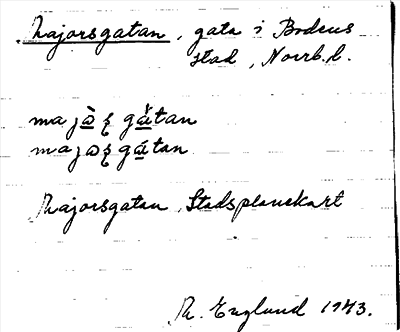 Majorsgatan, gata i Bodens
stad, Norrb.l.
majὼʂ gǎtan
majωʂ gátan
Majorsgatan, Stadsplanekart
R. Englund 1943.